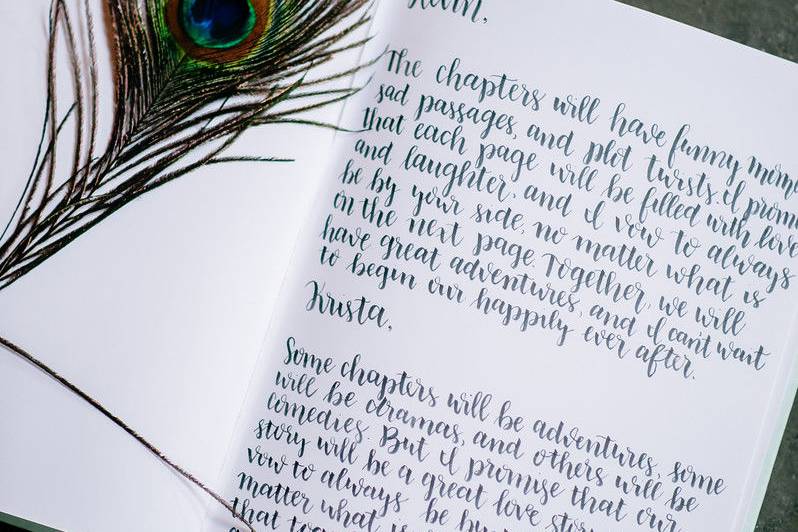 Kevin,
The chapters will have funny
sad passages, and plot twists. I
that each page will be filled with love
and laughter. and I vow to always
be by your side, no matter what is
on the next page. Together, we will
have great adventures, and I can't wait
to begin our happily ever after.
Krista,
Some chapters will be adventures, some
will be dramas, and others will be
comedies. But I promise that our
story will be a great love story.
vow to always be by
matter what is
that